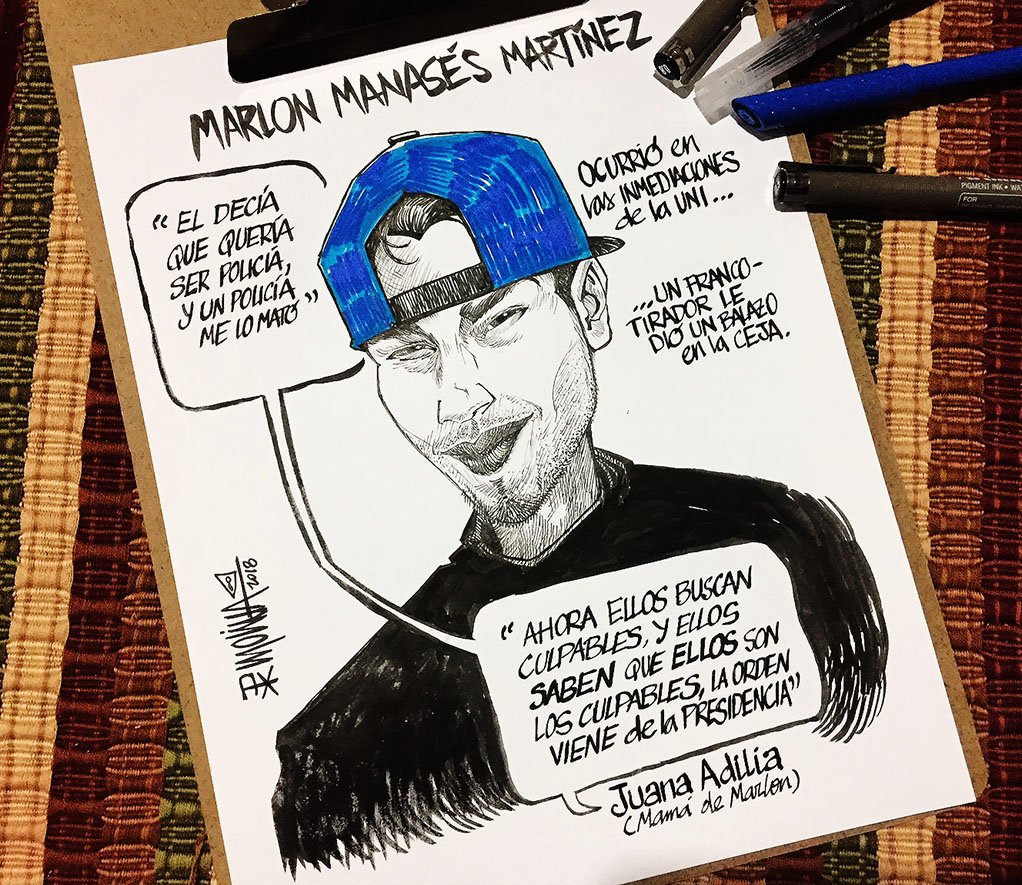 MARLON MANASÉS MARTÍNEZ
“ EL DECÍA
QUE QUERÍA
SER POLICIÁ,
Y UN POLICÍA
ME LO MATÓ ”
OCURRIÓ en
las INMEDIACIONES
de la UNI...
...UN FRANCO-
TIRADOR LE
DIÓ UN BALAZO
en la CEJA.
“ AHORA ELLOS BUSCAN
CULPABLES, Y ELLOS
SABEN QUE ELLOS SON
LOS CULPABLES, LA ORDEN
VIENE de la PRESIDENCIA”
Juana Adilia
(Mamá de Marlon)
2018
PIGMENT INK • WA
FOR